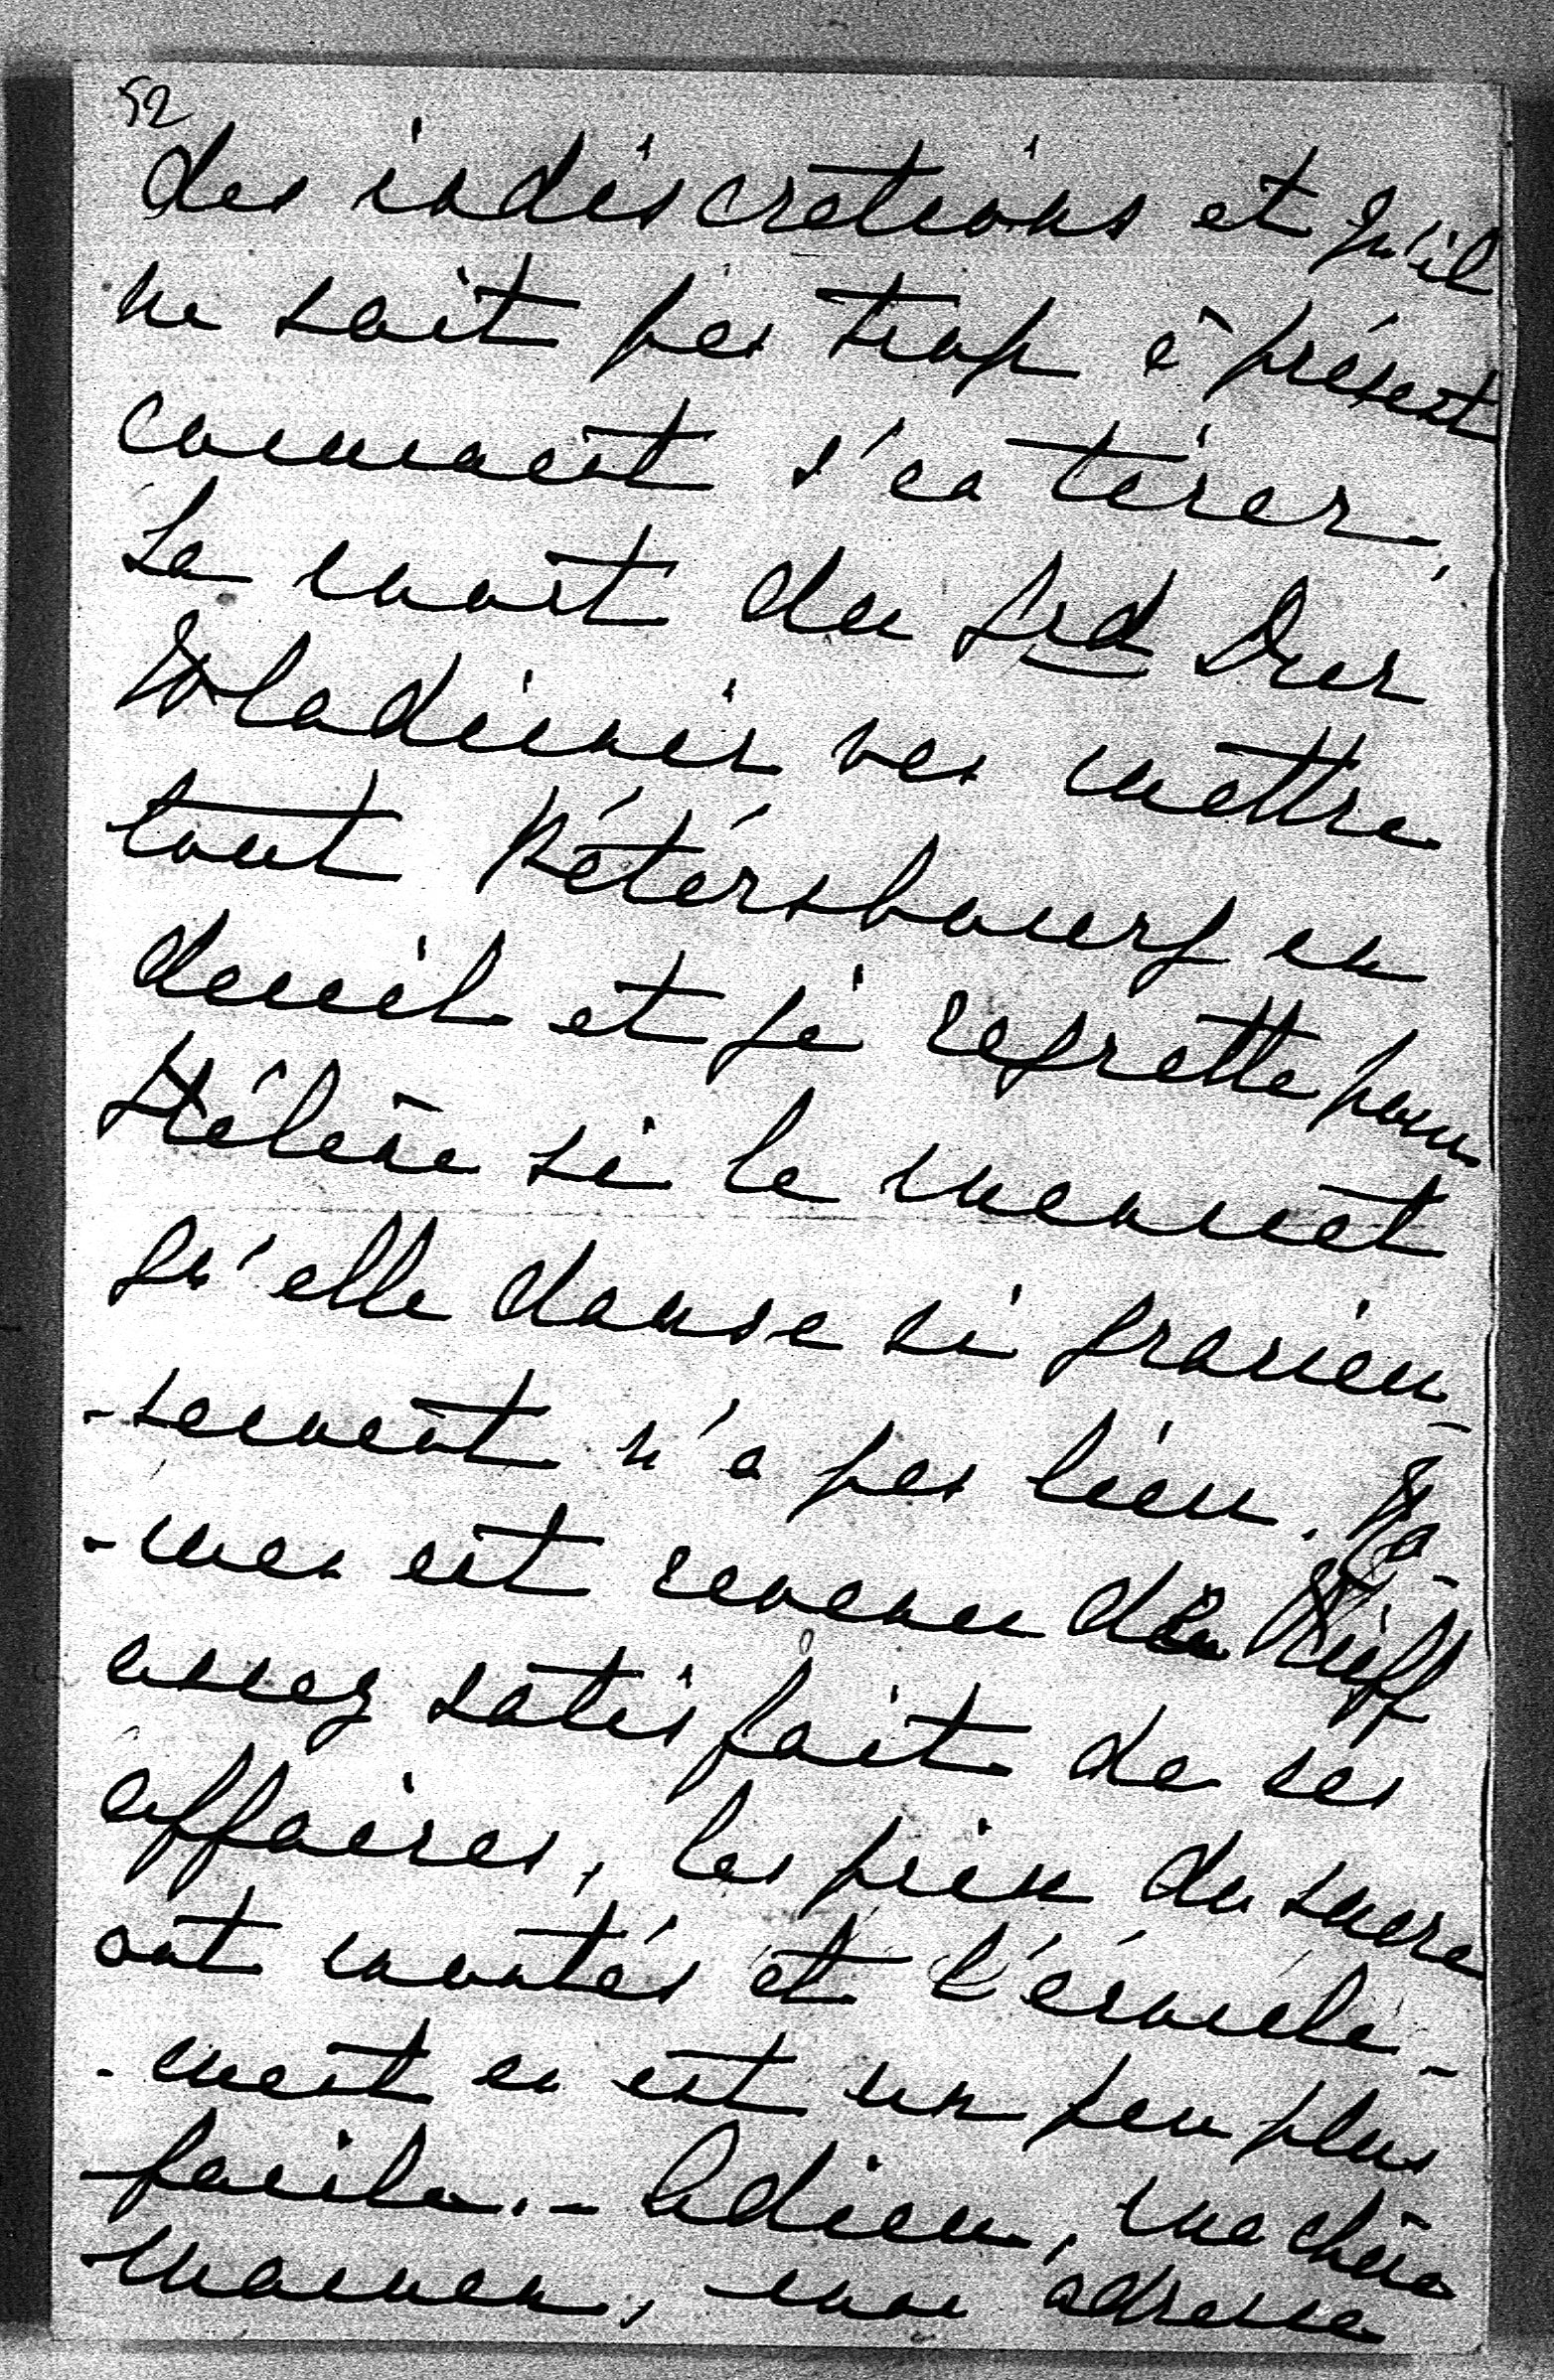 52
des indiscretions et qu'il
ne sait pas trop à présent
comment s'en tirer,
La mort du Grd Duc
Wladimir va mettre
tout Pétersbourg en
deuil et je regrette pour
Hélène si le menuet
qu'elle danse si gracieu-
-sement n'a pas lieu.
-mas est revenu de Kieff
assez satisfait de ses
affaires, les prix du sucre
ont montés et l'écoule-
-ment en est un peu plus
facile. - Adieu, ma chère
maman, mon adresse